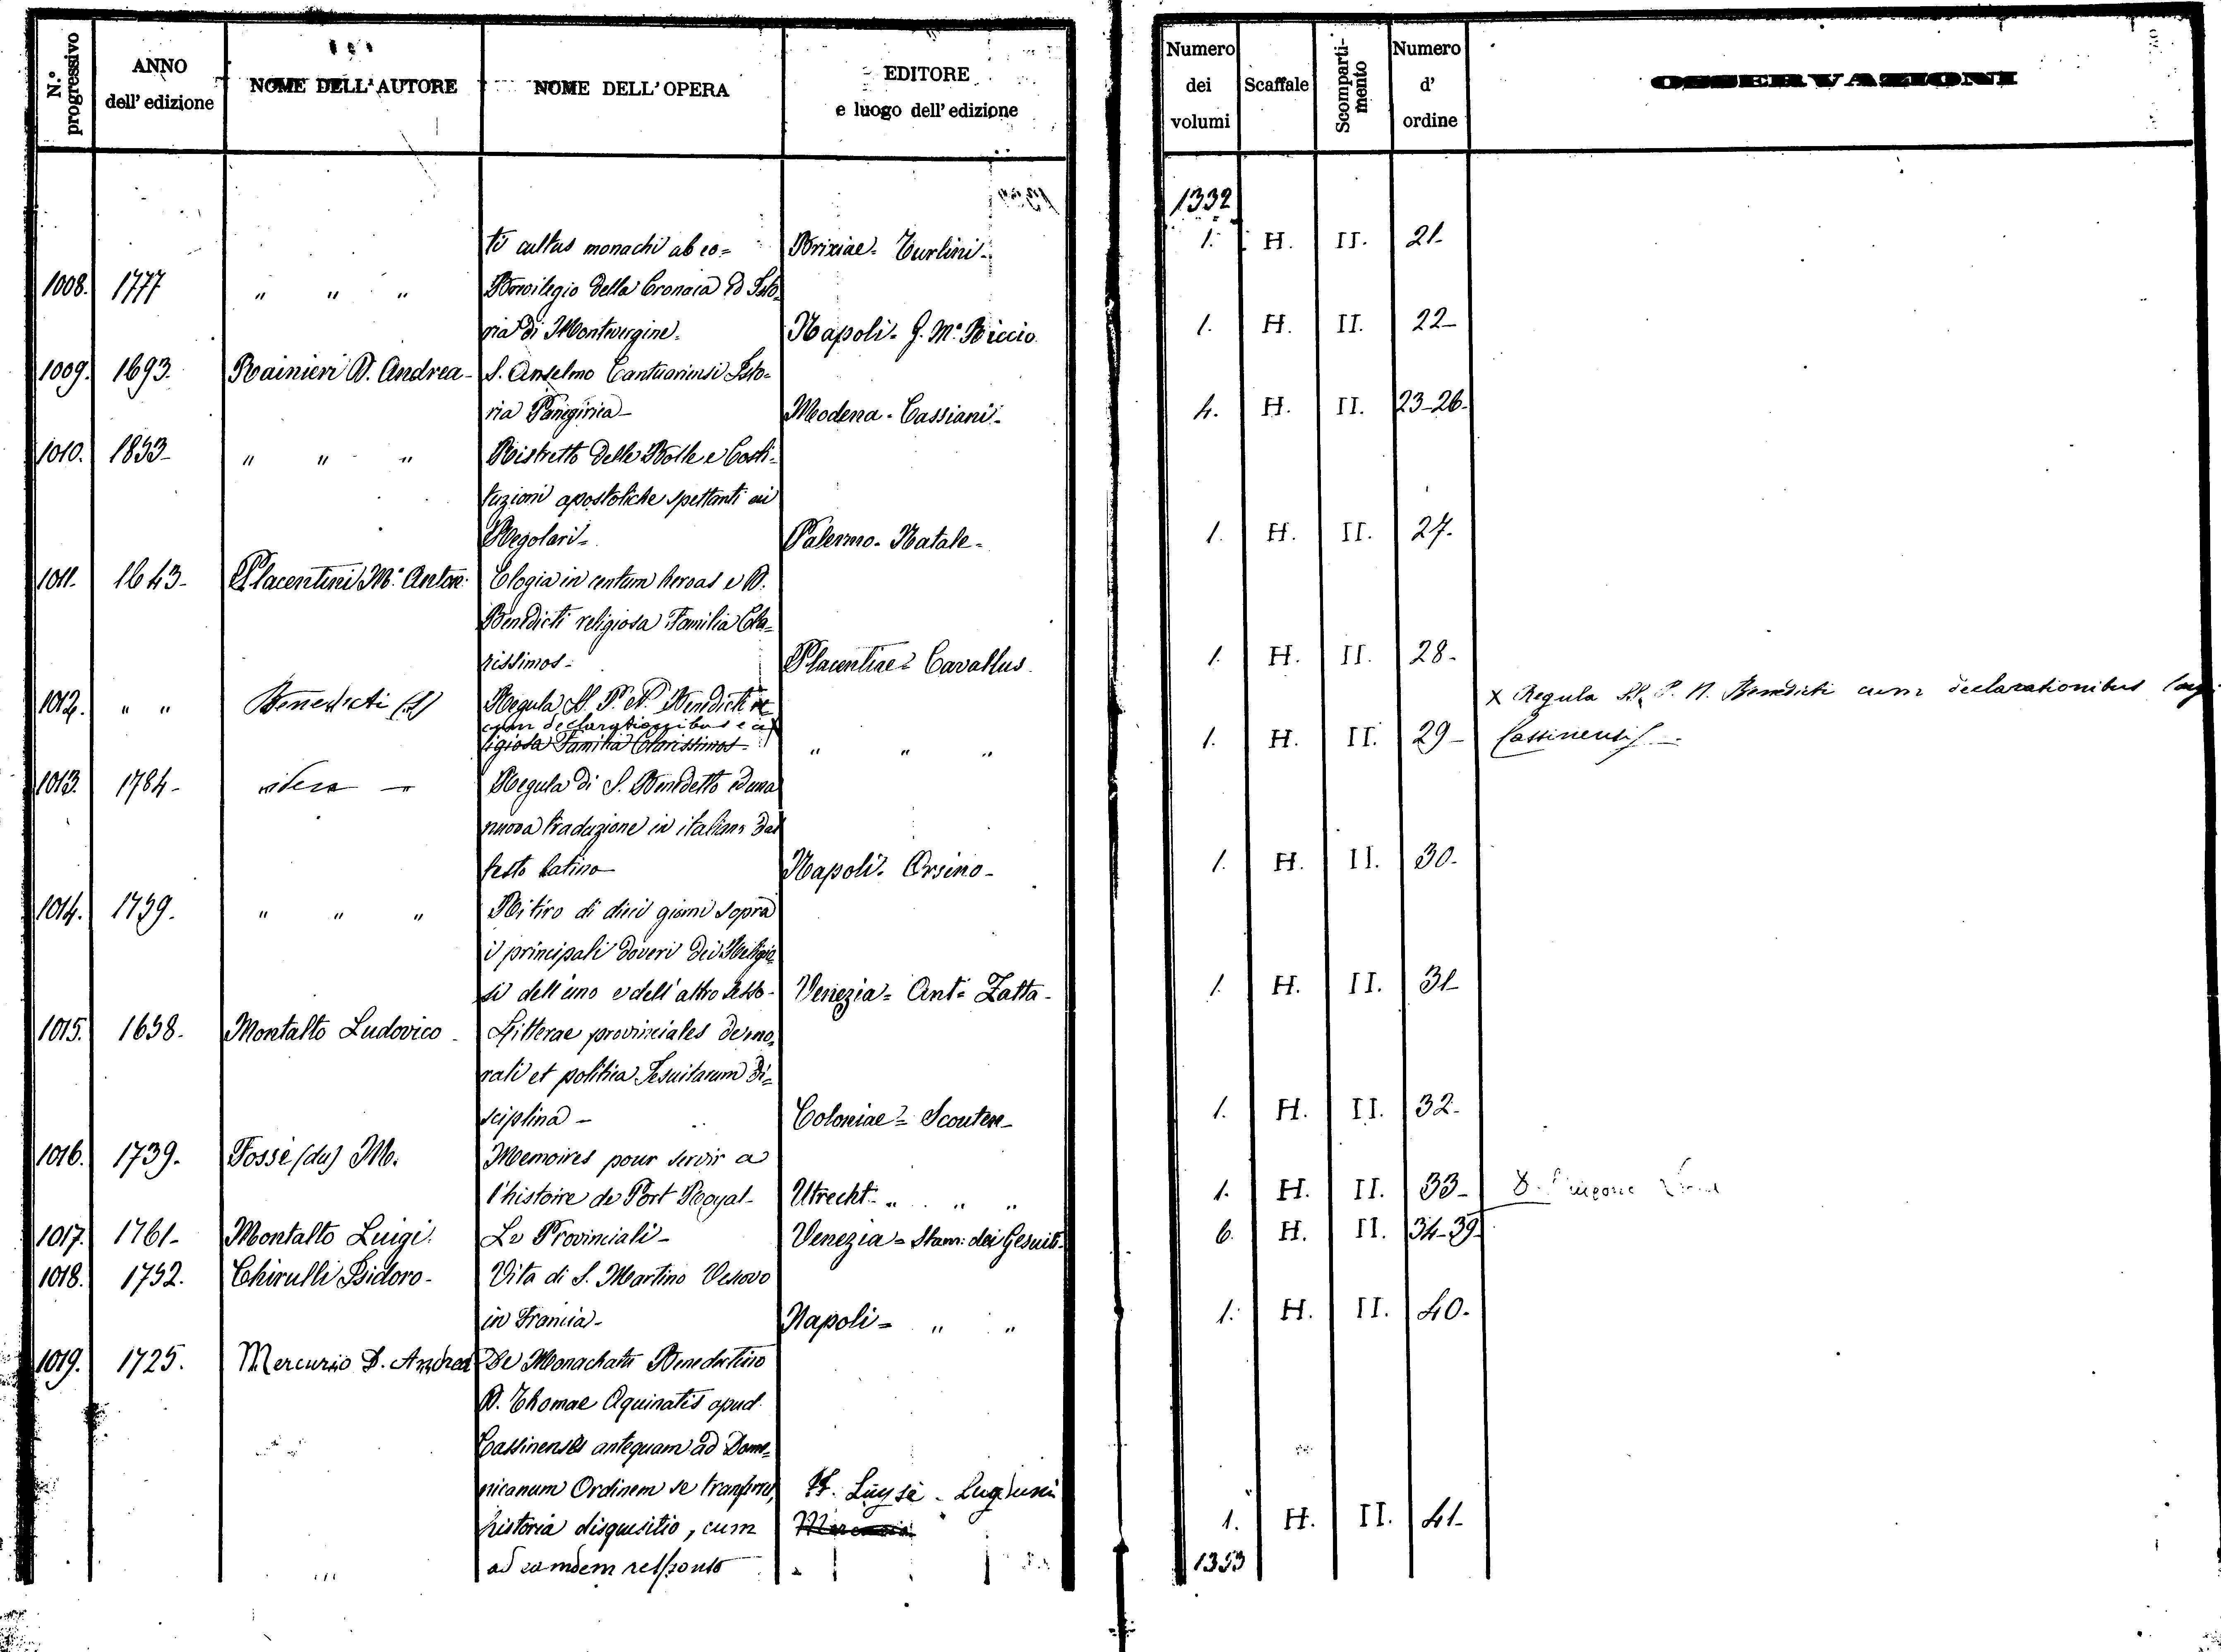 N.° progressivo
ANNO dell' edizione
NOME DELL' AUTORE
NOME DELL' OPERA
EDITORE e luogo dell' edizione
Numero dei volumi
Scaffale
Scomparti-mento
Numero d' ordine
OSSERVAZIONI
1332
ti cultus monachi ab eo= Brixiae= Turlini- 1. H. II. 21-
1008. 1777 " " " della Cronaca ed Isto=
ria di Montevergine. Napoli= G. Mª Riccio. 1. H. II. 22-
1009. 1693. Rainieri D. Andrea- S. Anselmo Cantuariensi Isto=
ria Panegirica- Modena- Cassiani- 4. H. II. 23-26-
1010. 1853- " " " Ristretto delle Bolle e Costi-
tuzioni apostoliche spettanti ai
Regolari= Palermo- Natale- 1. H. II. 27-
1011. 1643- Placentini M. Anton: Elogia in centum heroas e D.
Benedicti religiosa Familia Cla=
rissimos- Placentiae= Cavallus. 1. H. II. 28-
1012. " " Benedicti (S) Regula S. P. N. Benedicti re
cum declarationibus e
ligiosa Familia Clarissimos " " " 1. H. II. 29-
x Regula P. N. Benedicti cum declarationibus
Cassinensis-
1013. 1784- idem - Regula di S. Benedetto ed una
nuova traduzione in italiano dal
testo latino- Napoli= Orsino- 1. H. II. 30-
1014. 1759. " " " Ritiro di dieci giorni sopra
i principali doveri dei Religio=
si dell'uno e dell'altro sesso- Venezia= Ant= Zatta- 1. H. II. 31-
1015. 1658- Montalto Ludovico- Litterae provinciales de mo=
rali et politica Jesuitarum di=
sciplina- Coloniae= Scouten- 1. H. II. 32-
1016. 1739- Fossè (du) M. Memoires pour servir a
l'histoire de Port Royal- Utrecht- " " " 1. H. II. 33-
1017. 1761- Montalto Luigi. Le Provinciali- Venezia= Stam: dei Gesuiti- 6. H. II. 34-39-
1018. 1752. Chirulli Isidoro- Vita di S. Martino Vescovo
in Francia- Napoli= " " 1. H. II. 40-
1019. 1725. Mercurio D. Andrea De Monachatu Benedictino
D. Thomae Aquinatis apud
Cassinenses antequam ad Domi=
nicanum Ordinem se
historia disquisitio, cum 1. H. II. 41-
ad eamdem responso 1353